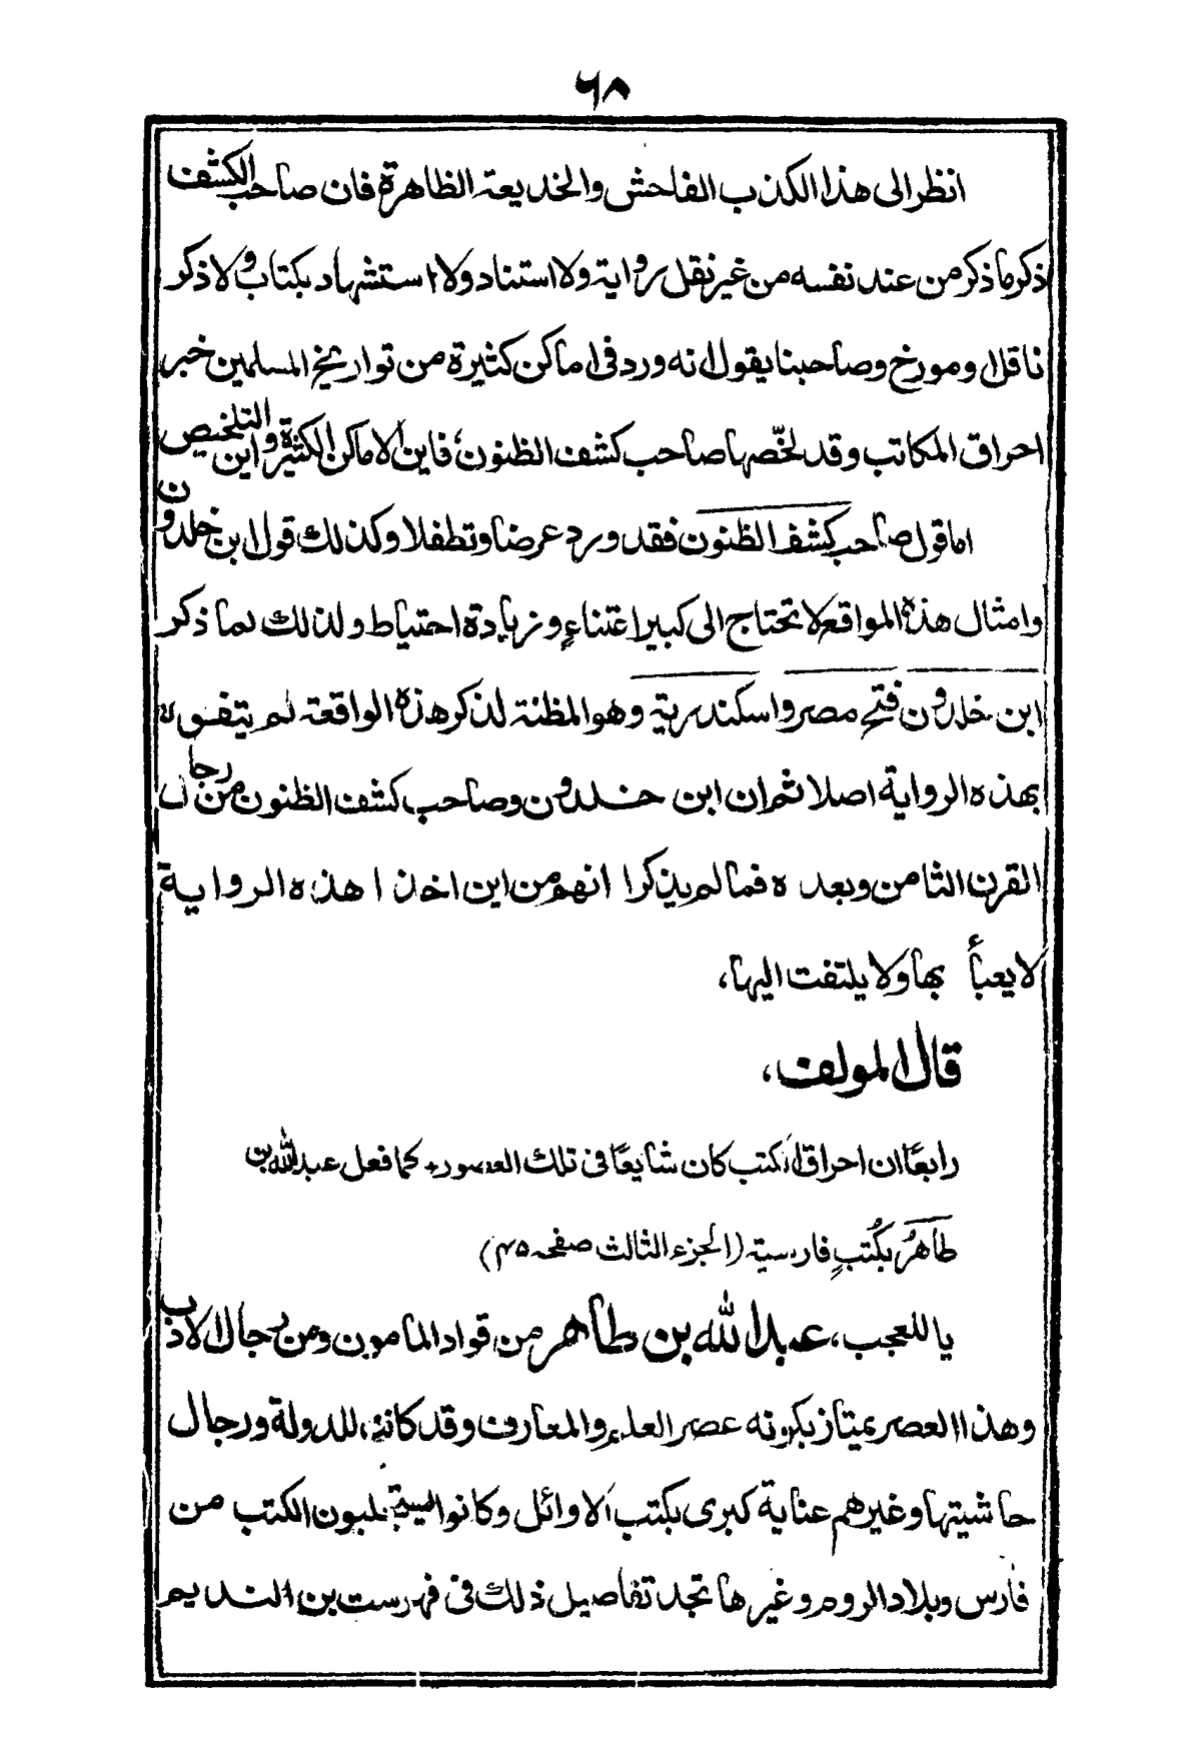 ٦٨
انظر الى هذا الكذب الفاحش والخديعة الظاهرة فان صاحب الكشف
ذكر ما ذكر من عند نفسه من غير نقل رواية ولا استناد ولا استشهاد بكتاب ولا ذكر
ناقل او مورخ وصاحبنا يقول انه ورد فى اماكن كثيرة من تواريخ المسلمين خبر
احراق المكاتب وقد لخّصها صاحب كشف الظنون، فاين الاماكن الكثيرة واين التلخيص
اما قول صاحب كشف الظنون فقد ورد عرضا وتطفلا وكذلك قول ابن خلدون
وامثال هذه المواقع لا تحتاج الى كبير اعتناءٍ وزيادة احتياط ولذلك لما ذكر
ابن خلدون فتح مصر واسكندرية وهو المظنة لذكر هذه الواقعة لم يتفوه
بهذه الرواية اصلا ثم ان ابن خلدون وصاحب كشف الظنون من رجال
القرن الثامن وبعده فما لم يذكرا انهم من اين اخذا هذه الرواية
لا يعبأ بها ولا يلتفت اليها،
قال المولف،
رابعًا ان احراق الكتب كان شايعًا فى تلك العصور، كما فعل عبد الله بن
طاهرٌ بكُتبٍ فارسية (الجزء الثالث صفحه ٤٥)
يا للعجب، عبد الله بن طاهر من قواد المامون ومن رجال الادب
وهذا العصر يمتاز بكونه عصر العلم والمعارف وقد كانت للدولة ورجال
حاشيتها وغيرهم عناية كبرى بكتب الاوائل وكانوا يستجلبون الكتب من
فارس وبلاد الروم وغيرها تجد تفاصيل ذلك فى فهرست بن النديم